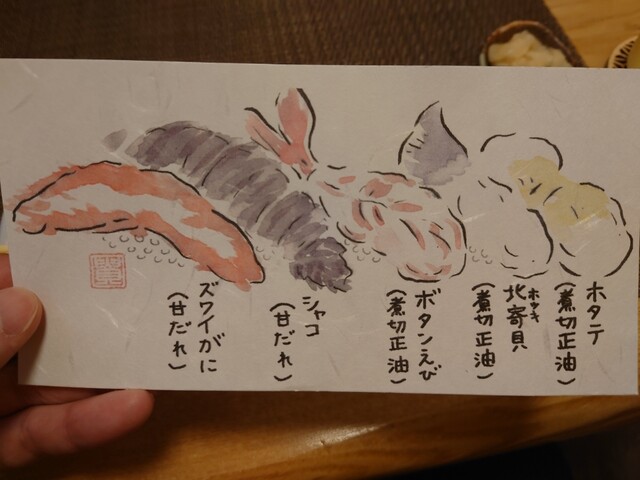 ホタテ
（煮切正油）
ホッキ
北寄貝
（煮切正油）
ボタンえび
（煮切正油）
シャコ
（甘だれ）
ズワイがに
（甘だれ）